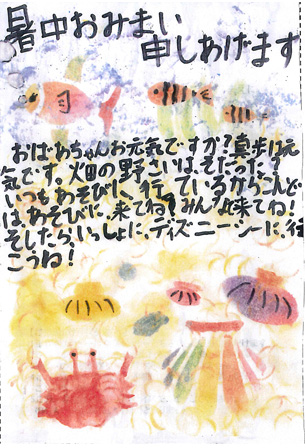 暑中おみまい
申しあげます
おばあちゃんお元気ですか?真歩は元
気です。畑の野さいは、そだった?
いつもあそびに、行っているからこんど
は、あそびに、来てね!みんなで来てね!
そしたら、いっしょに、ディズニーシーに、行
こうね!